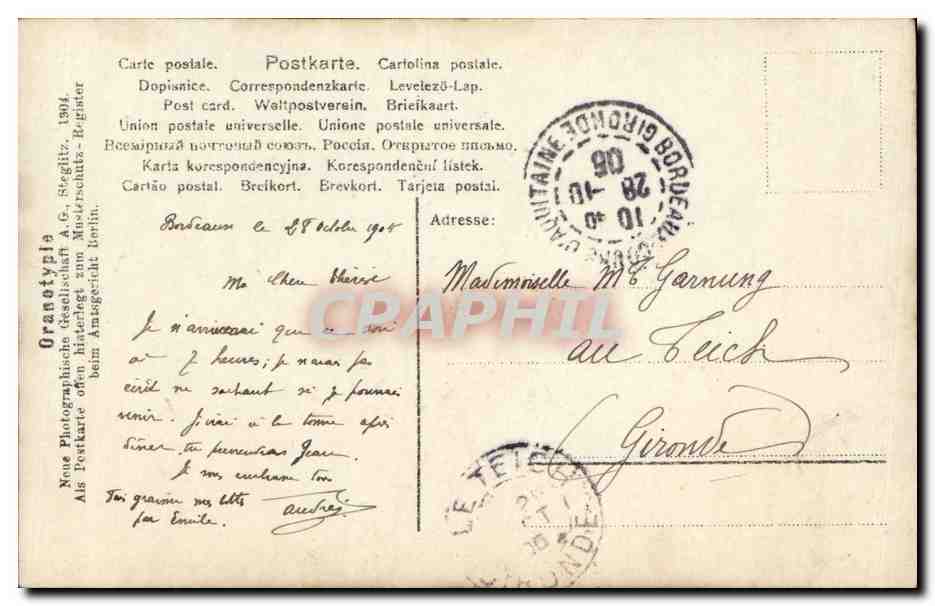 Carte postale. Postkarte. Cartolina postale.
Dopisnice. Correspondenzkarte. Levelező-Lap.
Post card. Weltpostverein. Briefkaart.
Union postale universelle. Unione postale universale.
Всемірный почтовый союзъ. Россія. Открытое письмо.
Karta korespondencyjna. Korespondenční lístek.
Cartão postal. Brefkort. Brevkort. Tarjeta postal.
Oranotypie
Neue Photographische Gesellschaft A.G., Steglitz. 1904.
Als Postkarte offen hinterlegt zum Musterschutz-Register
beim Amtsgericht Berlin.
Bordeaux le 28 Octobre 1905
Ma Chère Thérèse
Je n'arriverai que ce soir
à 7 heures; je n'avais pas
écrit ne sachant si je pourrai
venir. J'irai à la tonne après
dîner, tu préviendras Jean.
Je vous embrasse tous
André
graisser mes bottes
par Emile.
Adresse:
Mademoiselle Mt Garnung
au Teich
Gironde
BORDEAUX GIRONDE
D'AQUITAINE
10 40
28 -10
05
LE TEICH
GIRONDE
CPRAPHIL